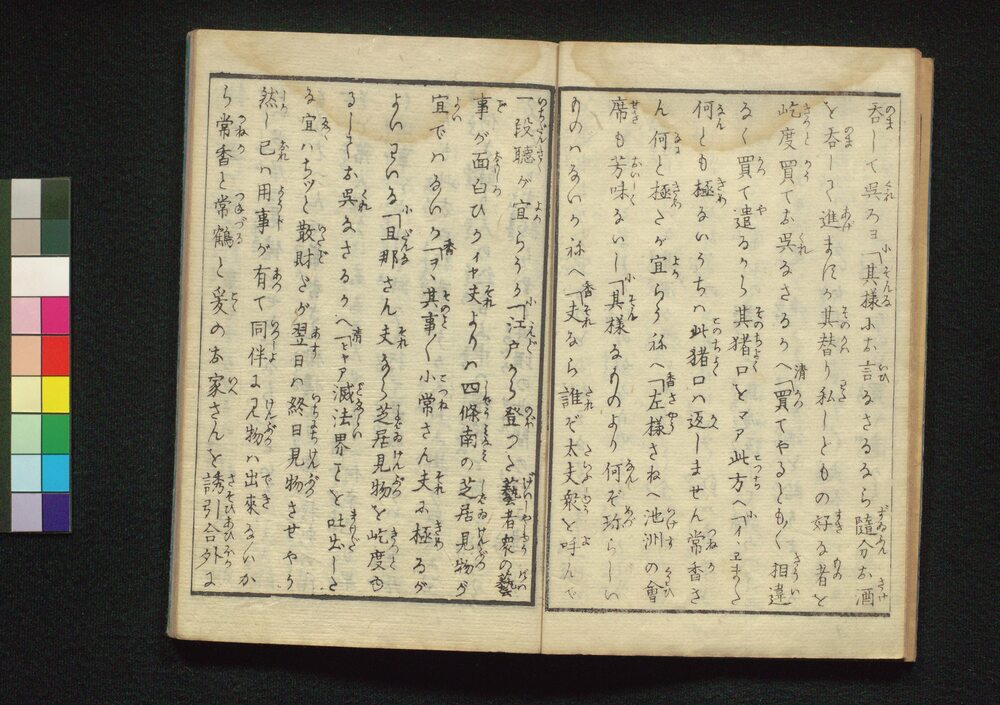 呑して呉ろヨ「其様にお言なさるなら隨分お酒
を呑して進ませにが其替り私しどもの好な者を
屹度買てお呉なさるかへ「買てやるとも〱相違
なく買て遣るから其猪口をマア此方へ「イヽヱまだ
何とも極ないうちハ此猪口ハ返しません常香さ
ん何と極たが宜らうねへ「左様さねへ池洲の會
席も芳味ないし「其様なものより何ぞ珍らしい
ものハないかねへ「夫なら誰ぞ太夫衆を呼んで
一段聴が宜らうか「江戸から登つた藝者衆の藝
事が面白ひかイヤ夫よりハ四條南の芝居見物が
宜でハないか「ヲヽ其事〱小常さん夫に極るが
よいわいな「旦那さん夫なら芝居見物を屹度お
るしてお呉なさるかへ「ヒヤア滅法界なことを吐出した
な宜ハちツと散財だが翌日ハ終日見物させやう
然し己ハ用事が有て同伴に見物ハ出來ないか
ら常香と常鶴と爰のお家さんを誘引合外に